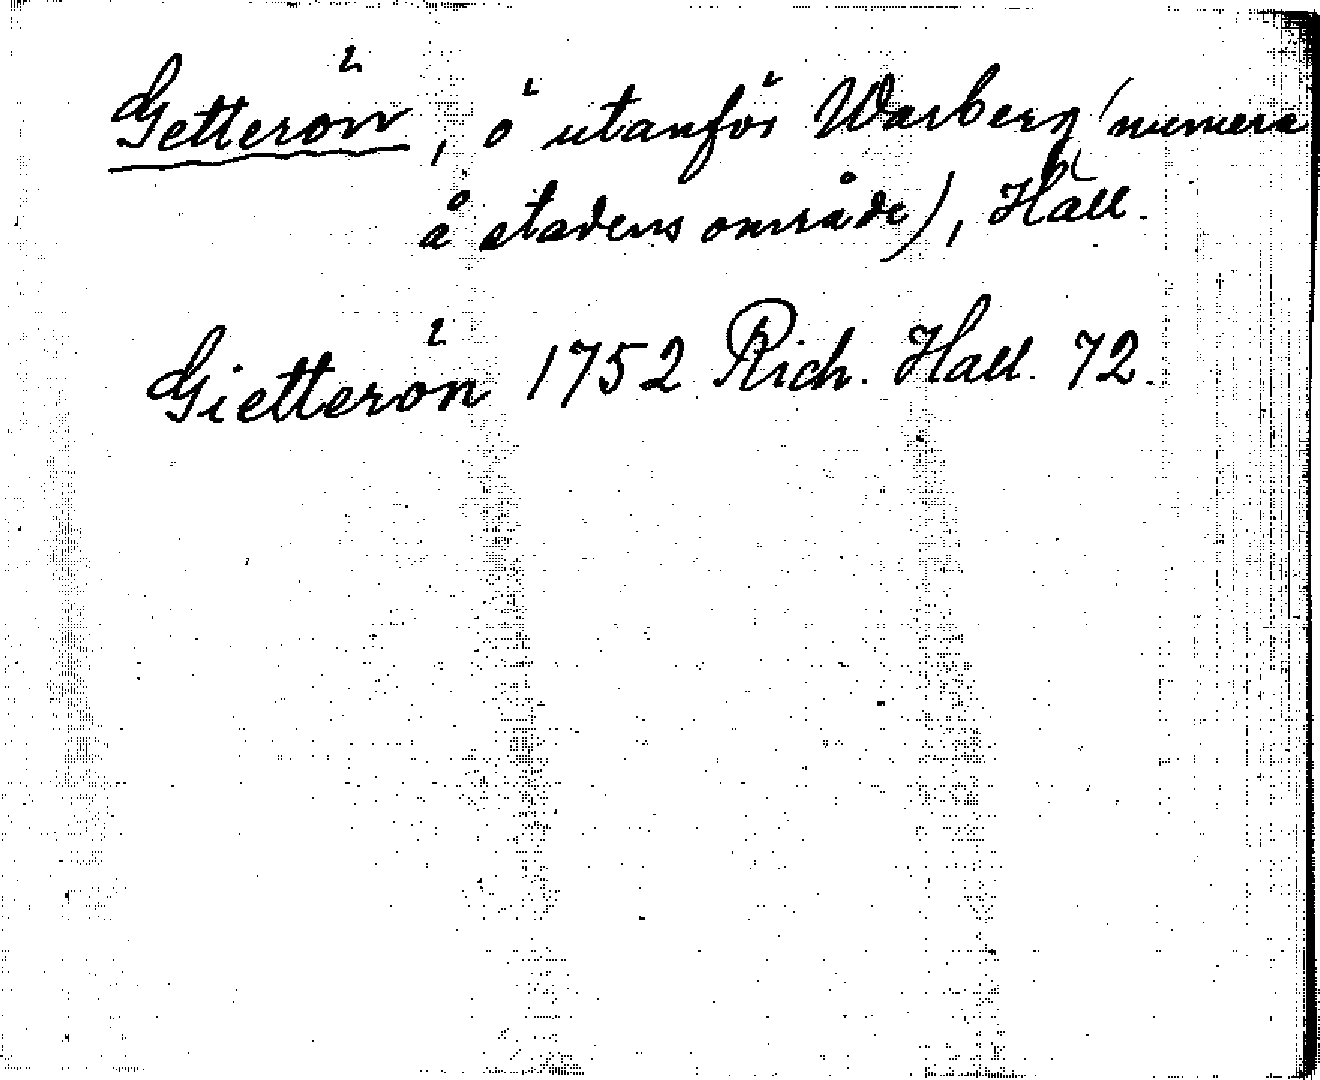 Getterön, ö utanför Warberg (numera
å stadens område), Hall.
Gietterön 1752 Rich. Hall. 72.